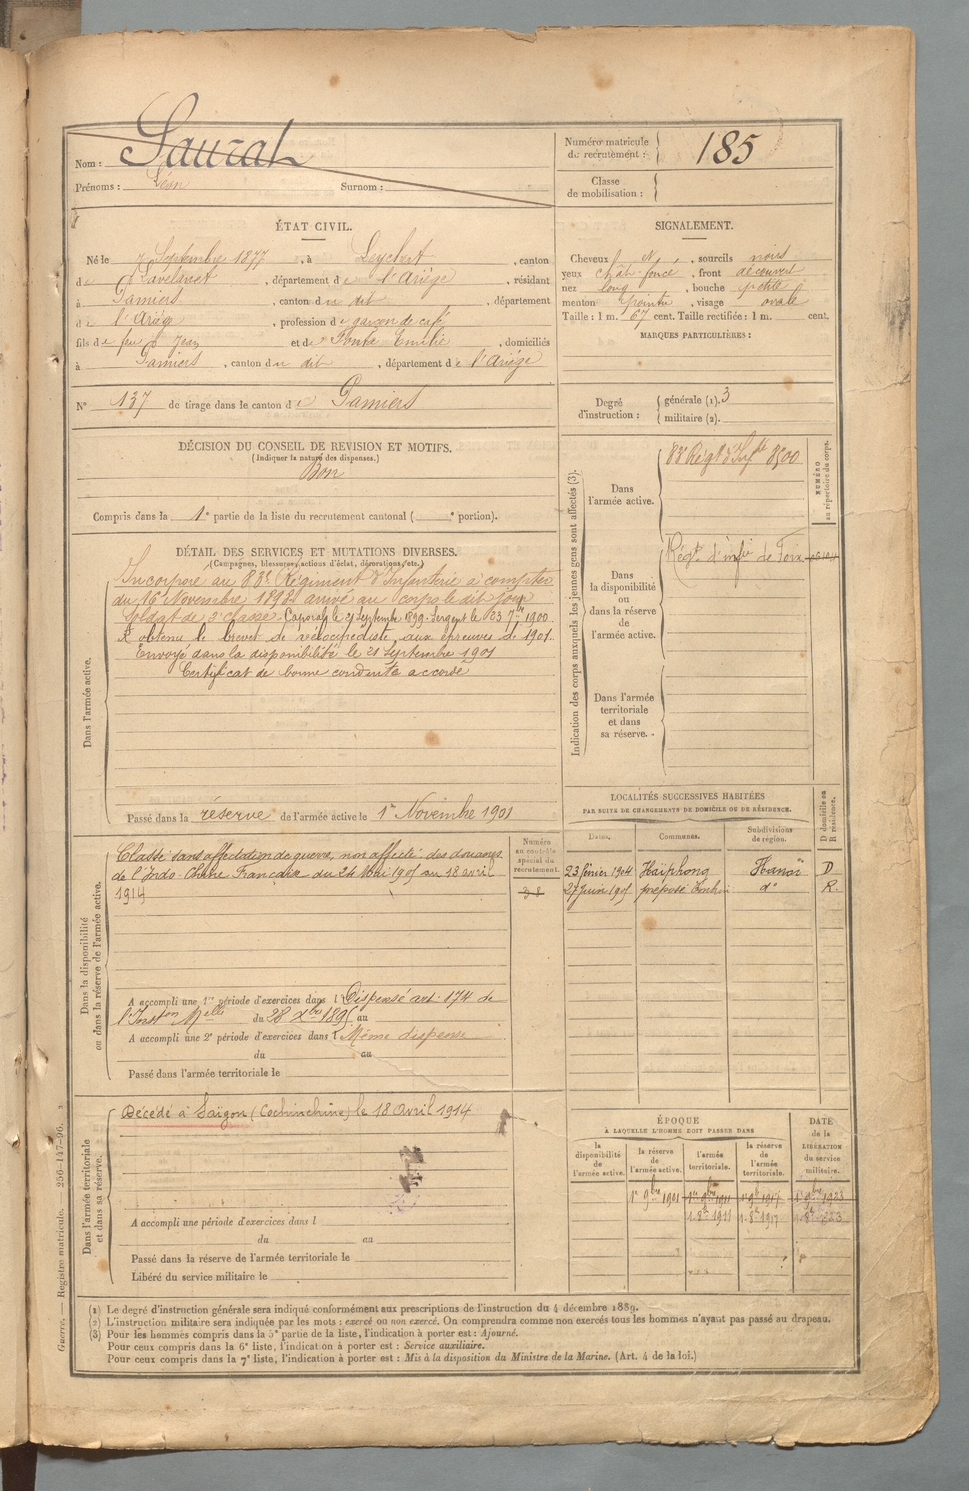 Nom : Sauzat
Prénoms : Léon Surnom :
Numéro matricule de recrutement : 185
Classe de mobilisation :
ÉTAT CIVIL.
Né le 7 Septembre 1877, à Leychert, canton
de Lavelanet, département de l'Ariège, résidant
à Pamiers, canton du dit, département
de l'Ariège, profession de garçon de café
fils de feu Jean et de Ponté Emilie, domiciliés
à Pamiers, canton du dit, département de l'Ariège
N° 137 de tirage dans le canton de Pamiers
SIGNALEMENT.
Cheveux et, sourcils noirs
yeux chât. foncé, front découvert
nez long, bouche petite
menton pointu, visage ovale
Taille : 1 m. 67 cent. Taille rectifiée : 1 m. cent.
MARQUES PARTICULIÈRES :
Degré d'instruction : générale (1). 3
militaire (2).
DÉCISION DU CONSEIL DE REVISION ET MOTIFS.
(Indiquer la nature des dispenses.)
Bon
Compris dans la 1e partie de la liste du recrutement cantonal ( e portion).
DÉTAIL DES SERVICES ET MUTATIONS DIVERSES.
(Campagnes, blessures, actions d'éclat, décorations, etc.)
Dans l'armée active.
Incorporé au 83e Régiment d'Infanterie à compter
du 16 Novembre 1898 arrivé au corps le dit jour
Soldat de 2e classe. Caporal le 21 Septembre 1899. Sergent le 23 7bre 1900.
A obtenu le brevet de vélocipédiste, aux épreuves de 1901.
Envoyé dans la disponibilité le 21 Septembre 1901
Certificat de bonne conduite accordé
Passé dans la réserve de l'armée active le 1er Novembre 1901
Indication des corps auxquels les jeunes gens sont affectés (3).
Dans l'armée active.
83e Régt d'Infte 8500
NUMÉRO au répertoire du corps.
Dans la disponibilité ou dans la réserve de l'armée active.
Régt d'infie de Foix
Dans l'armée territoriale et dans sa réserve.
Dans la disponibilité ou dans la réserve de l'armée active.
Classé sans affectation de guerre, non affecté, des douanes
de l'Indo-Chine Française du 24 Mai 1905 au 18 avril
1914
Numéro au contrôle spécial du recrutement.
38
A accompli une 1re période d'exercices dans l Dispensé art. 174 de
l'Inston Melle du 28 Xbre 1895 au
A accompli une 2e période d'exercices dans l Même dispense
du au
Passé dans l'armée territoriale le
LOCALITÉS SUCCESSIVES HABITÉES
PAR SUITE DE CHANGEMENTS DE DOMICILE OU DE RÉSIDENCE.
Dates. Communes. Subdivisions de région. D domicile ou R résidence.
23 février 1904 Haïphong Hanoï D
27 juin 1905 préposé d° R.
Dans l'armée territoriale et dans sa réserve.
Décédé à Saïgon (Cochinchine) le 18 avril 1914
A accompli une période d'exercices dans l
du au
Passé dans la réserve de l'armée territoriale le
Libéré du service militaire le
ÉPOQUE
À LAQUELLE L'HOMME DOIT PASSER DANS
la disponibilité de l'armée active. la réserve de l'armée active. l'armée territoriale. la réserve de l'armée territoriale. DATE de la LIBÉRATION du service militaire.
1er 9bre 1901 1er 9bre 1911 1er 9bre 1917 1er 9bre 1923
1. 8bre 1911 1. 8bre 1917 1. 8bre 1923
(1) Le degré d'instruction générale sera indiqué conformément aux prescriptions de l'instruction du 4 décembre 1889.
(2) L'instruction militaire sera indiquée par les mots : exercé ou non exercé. On comprendra comme non exercés tous les hommes n'ayant pas passé au drapeau.
(3) Pour les hommes compris dans la 5e partie de la liste, l'indication à porter est : Ajourné.
Pour ceux compris dans la 6e liste, l'indication à porter est : Service auxiliaire.
Pour ceux compris dans la 7e liste, l'indication à porter est : Mis à la disposition du Ministre de la Marine. (Art. 4 de la loi.)
Guerre. — Registre matricule. 256-147-96.